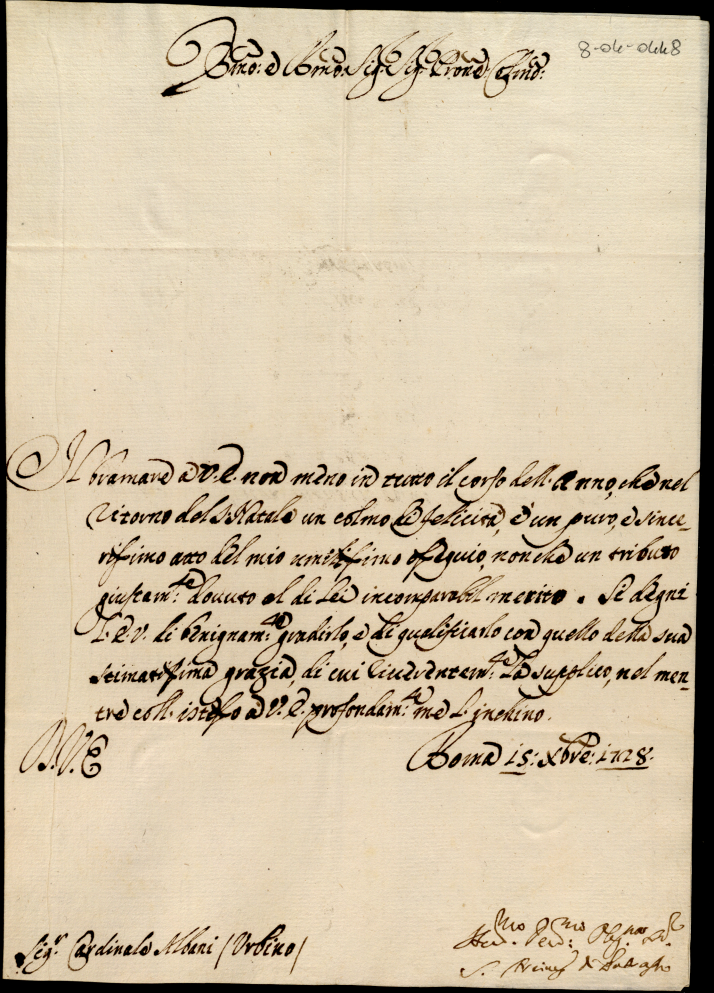 8-04-048
Emo: e Rmo Sig: Sig: Prone Colmo:
Il bramare a V. E. non meno in tutto il corso dell' Anno, che nel
ritorno del S. Natale un colmo di felicità, è un puro, e since-
rissimo atto del mio umilissimo ossequio, non che un tributo
giustam:te dovuto al di Lei incomparabil merito. Si degni
L' E. V. di benignam:te gradirlo, e di qualificarlo con quello della sua
stimatissima grazia, di cui riverentem:te La supplico, nel men-
tre coll' istesso a V. E. profondam:te me L' inchino.
D. V. E
Roma 15: Xbre: 1728.
Sig.r Cardinale Albani (Urbino)